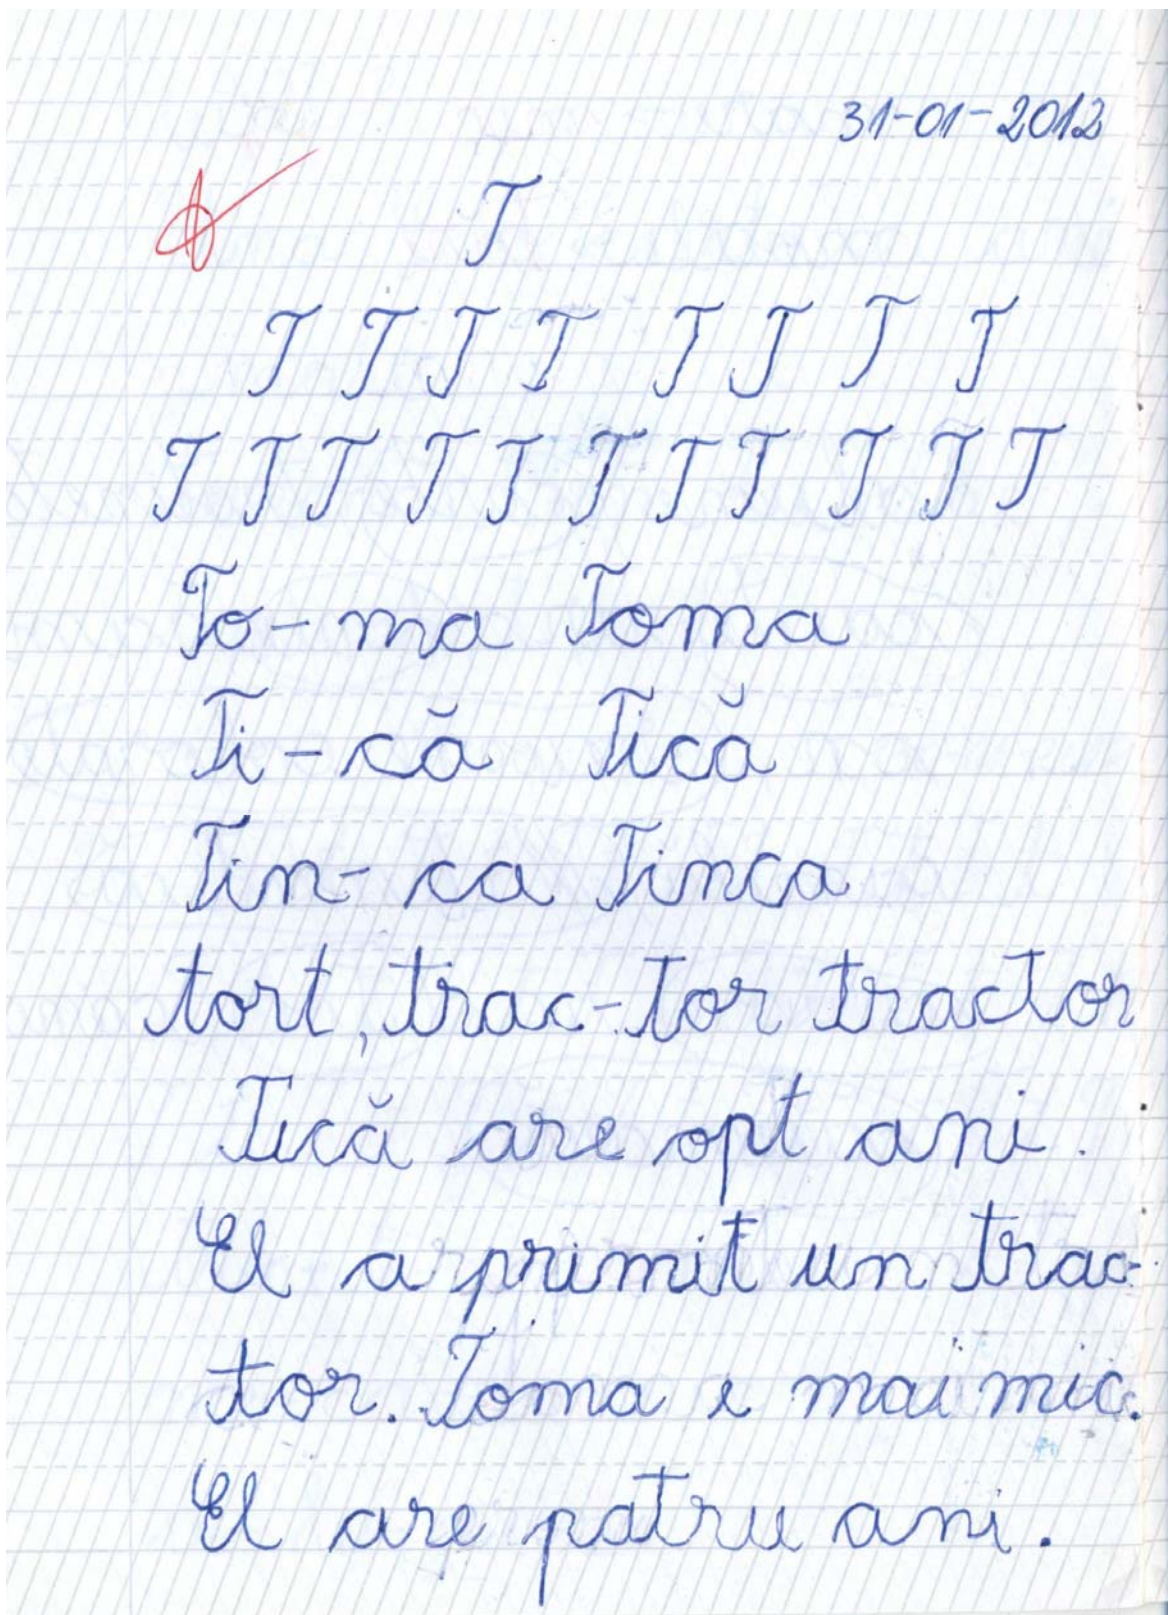 31-01-2012
T
T T T T T T T T
T T T T T T T T T T T
To-ma Toma
Ti-că Tică
Tin-ca Tinca
tort, trac-tor tractor
Tică are opt ani.
El a primit un trac-
tor. Toma e mai mic.
El are patru ani.